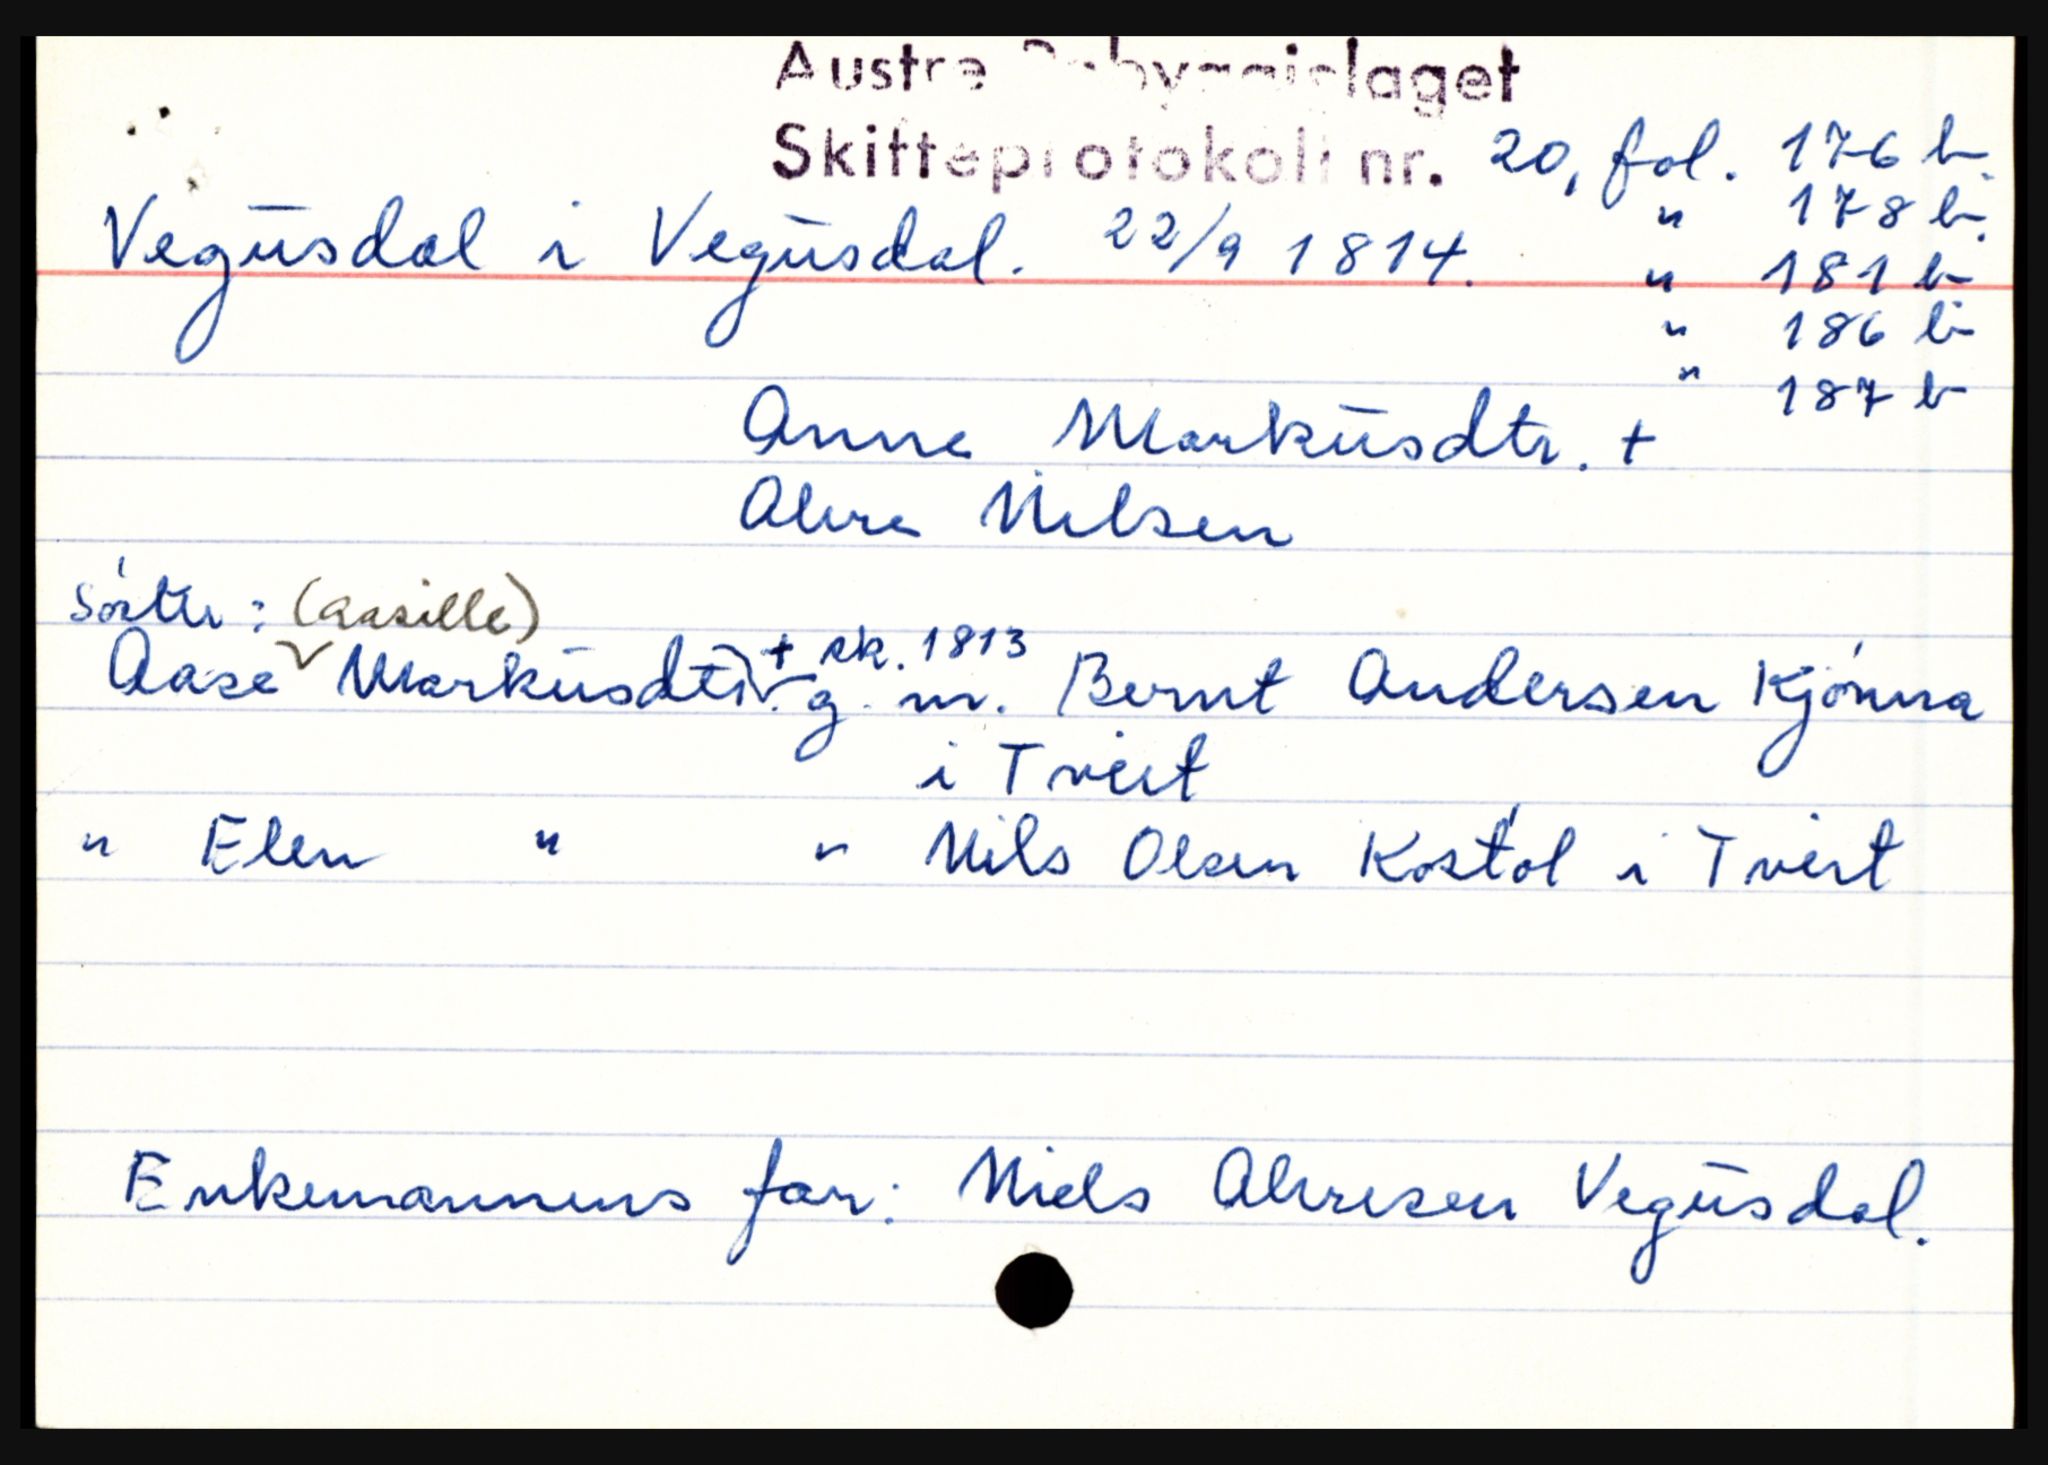 Austre Robyggjelaget
Skifteprotokoll nr. 20, fol. 176 b.
" 178 b.
Vegusdal i Vegusdal. 22/9 1814.
" 181 b
" 186 b
" 187 b
Anne Markusdtr. +
Alvre Nilsen
Söster: (Aasille)
Aase Markusdtr. + sk. 1813 g. m. Bernt Andersen Kjónna
i Tveit
" Elen " " Nils Olsen Kostól i Tveit
Enkemannens far: Niels Alvresen Vegusdal.